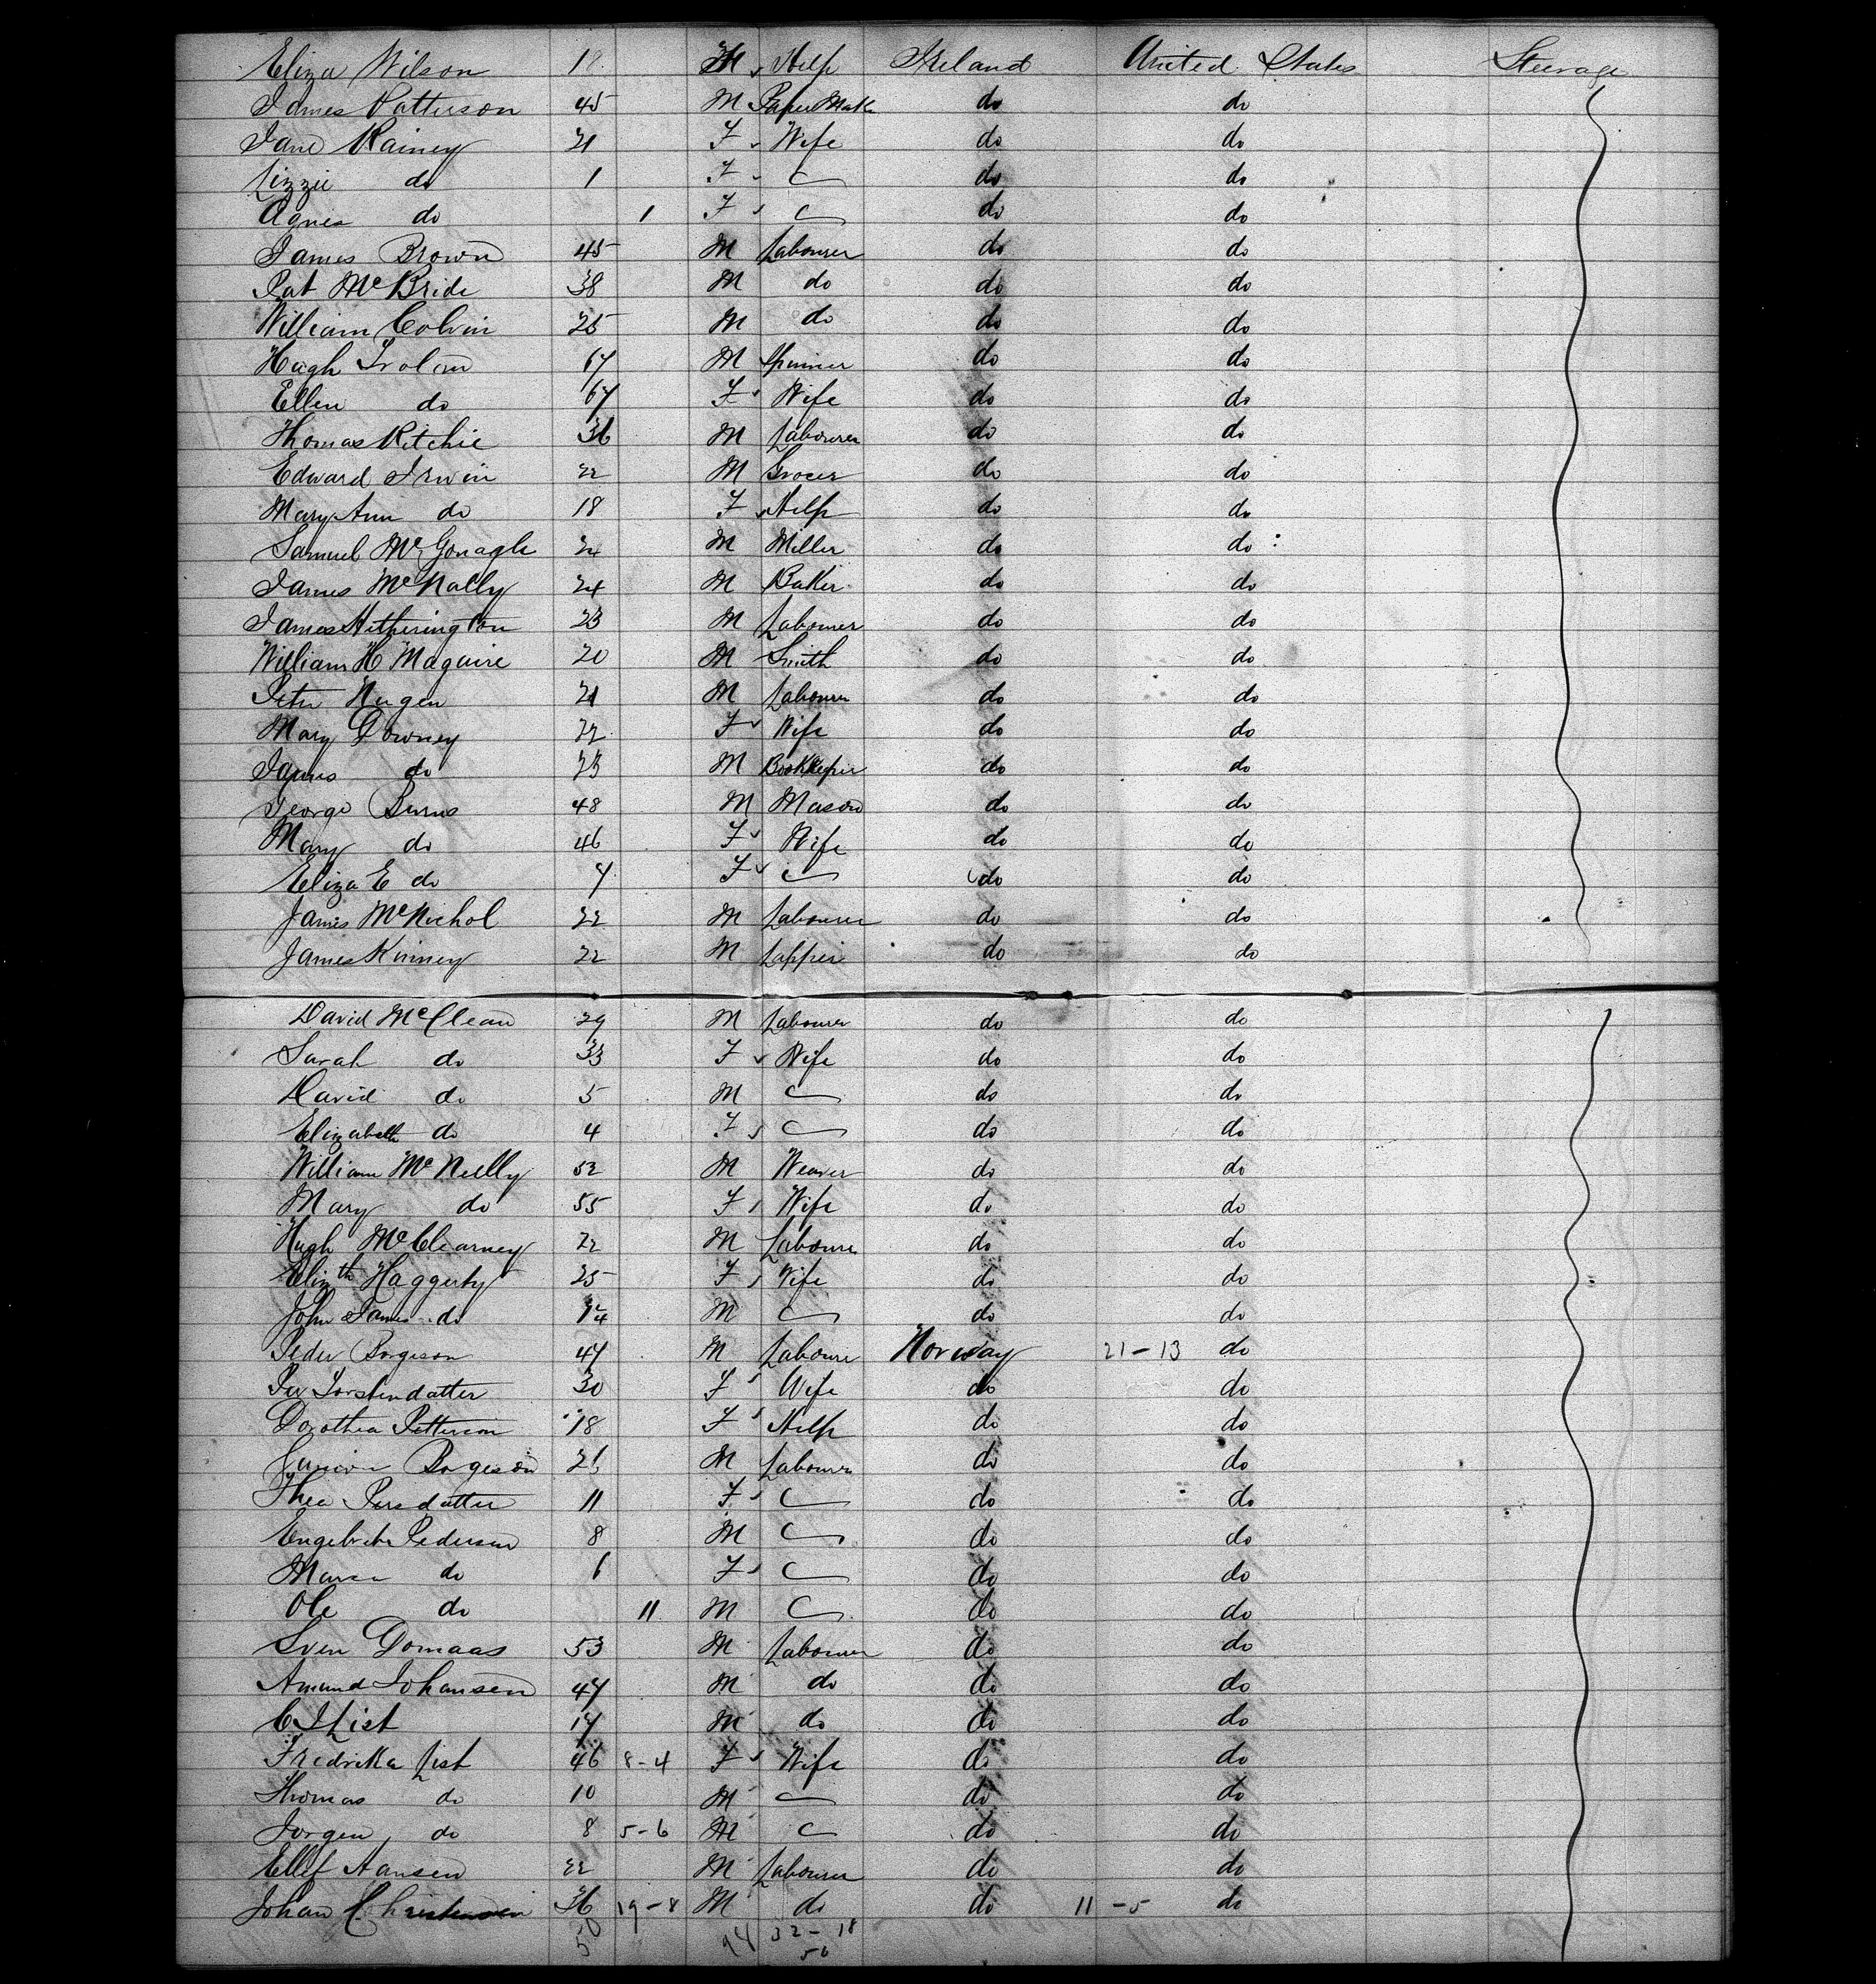 Eliza Wilson 18 F Help Ireland United States Steerage
James Patterson 45 M Paper Mak do do
Jane Rainey 21 F Wife do do
Lizzie do 1 F do do
Agnes do 1 F do do
James Brown 45 M Labourer do do
Pat McBride 38 M do do do
William Colvin 25 M do do do
Hugh 67 M Spinner do do
Ellen do 67 F Wife do do
Thomas Ritchie 36 M Labourer do do
Edward Irwin 22 M Grocer do do
Mary Ann do 18 F Help do do
Samuel McGonagle 24 M Miller do do
James McNally 24 M Baker do do
James Hetherington 23 M Labourer do do
William H Maguire 20 M Smith do do
Peter Nugen 21 M Labourer do do
Mary Downey 22 F Wife do do
James do 23 M Bookkeeper do do
George Burns 48 M Mason do do
Mary do 46 F Wife do do
Eliza E do 7 F do do
James McNichol 22 M Labourer do do
James Kinney 22 M Lapper do do
David McClean 29 M Labourer do do
Sarah do 33 F Wife do do
David do 5 M do do
Elizabeth do 4 F do do
William McNeilly 52 M Weaver do do
Mary do 55 F Wife do do
Hugh McClearney 22 M Labourer do do
Elizth Haggerty 25 F Wife do do
John James do M do do
Peder Borgeson 47 M Labourer Norway 21-13 do
Torstendatter 30 F Wife do do
Dorothea Petterson 18 F Help do do
Borgeson M Labourer do do
Thea Persdatter 11 F do do
Pedersen 8 M do do
Maren do 6 F do do
Ole do 11 M do do
Sven Domaas 53 M Labourer do do
Amund Johansen 47 M do do do
C J List 17 M do do do
Fredrikka List 46 8-4 F Wife do do
Thomas do 10 M do do
Jorgen do 8 5-6 M do do
Ellef Hansen 22 M Labourer do do
Johan Christensen 36 19-8 M do do 11-5 do
50 94 32-18
5 50